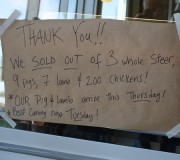 THANK You!!
We SOLD OUT OF 3 whole Steer,
9 pigs, 7 lamb & 200 Chickens!
*OUR Pig & lamb arrive this Thursday!
* Beef Coming next Tuesday!